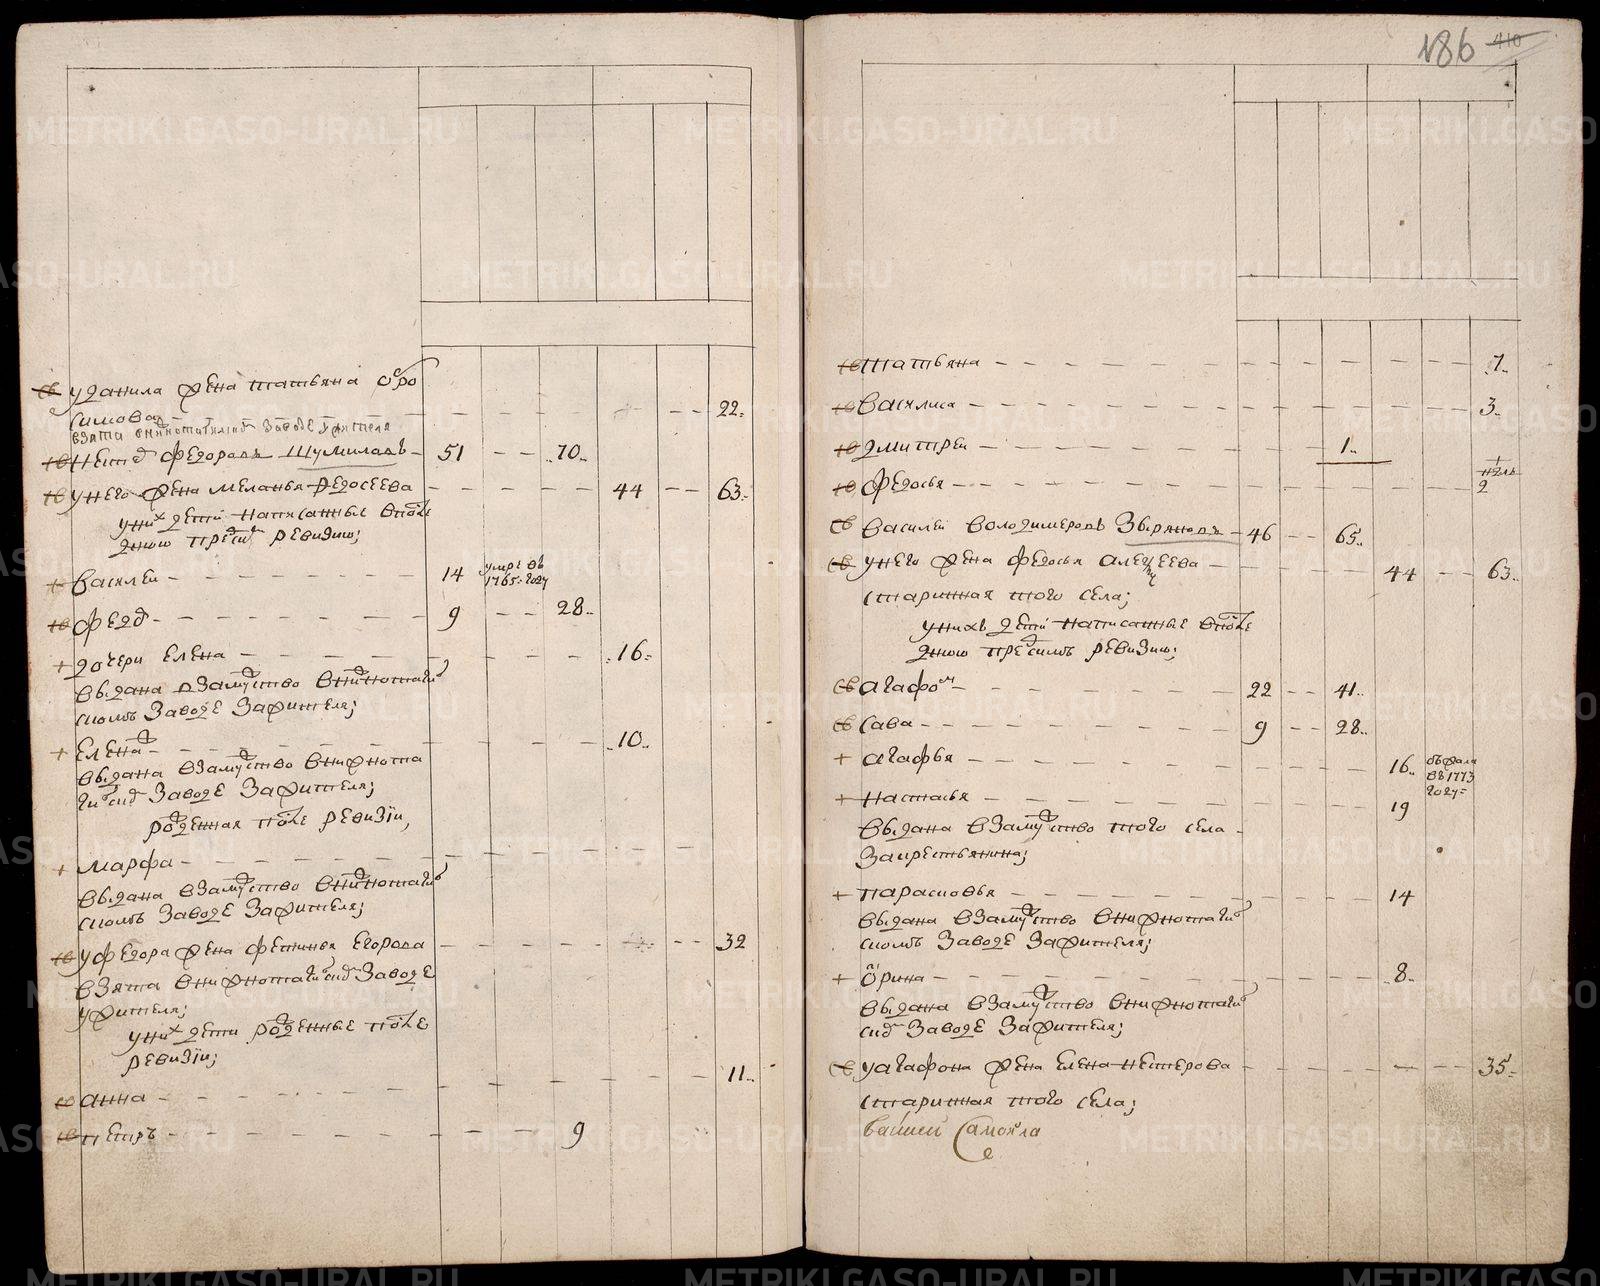 186 410
у данила жена татьяна обро
симова 22
взята внижнотагилской заводе у жителя
петр федоровъ шумиловъ 51 70
у него жена меланья федосеева 44 63
у них дети написанные в после
днюю пред сим ревизию;
василеи 14 умре въ 1765 году
федор 9 28
дочери елена 16
выдана взамужство внижнотагил
скомъ заводе зажителя;
елена 10
выдана взамужство внижнота
гилской заводе зажителя;
рожденная после ревизiи,
марфа
выдана взамужство внижнотагил
скомъ заводе зажителя;
у федора жена фетинья егорова 32
взята внижнотагилской заводе
ужителя;
у них дети рожденные после
ревизiи;
анна 11
петръ 9
татьяна 7
василиса 3
дмитреи 1
федосья 1/2
василеи володимеровъ зыряновъ 46 65
у него жена федосья алексеева 44 63
старинная того села;
у нихъ дети написанные в после
днюю пред симъ ревизию;
агафон 22 41
сава 9 28
агафья 16 въ 1773 году
настасья 19
выдана взамужство того села
закрестьянина;
парасковья 14
выдана взамужство внижнотагил
скомъ заводе зажителя;
орина 8
выдана взамужство внижнотагил
ской заводе зажителя;
у агафона жена елена нестерова 35
старинная того села;
METRIKI.GASO-URAL.RU